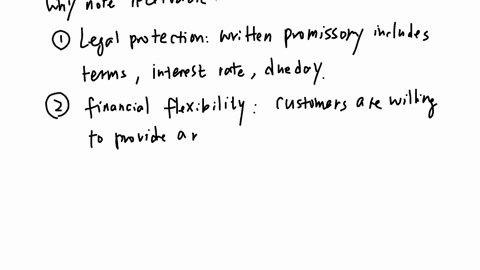 why note
① Legal protection: written promissory includes
terms, interest rate, dueday.
② financial flexibility: customers are willing
to provide a r